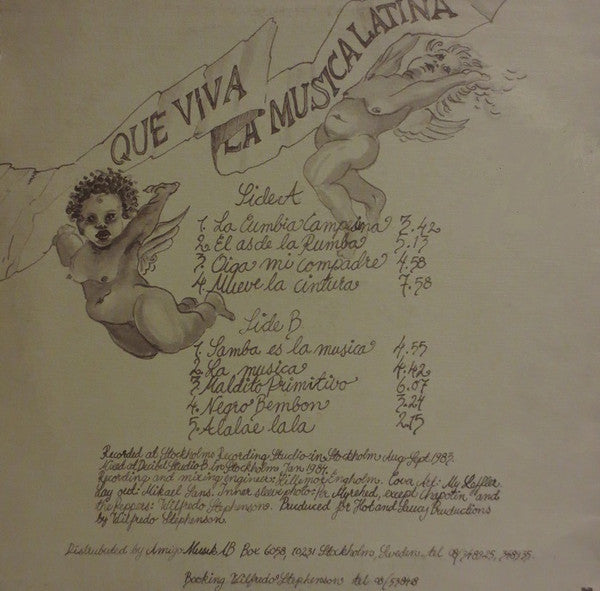 QUE VIVA
LA MUSICA LATINA
Side A
1. La Cumbia Campesina 3.42
2. El as de la Rumba 5.13
3. Oiga mi compadre 4.58
4. Mueve la cintura 7.58
Side B
1. Samba es la musica 4.55
2. La musica 4.42
3. Maldito Primitivo 6.07
4. Negro Bembon 3.24
5. Alalae lala 2.15
Recorded at Stockholm Recording Studio in Stockholm Aug-Sept 1983.
Mixed at Decibel Studio B. in Stockholm Jan 1984.
Recording and mixing engineer: Hillemor Engholm. Cova Art: My
Lay out: Mikael Sens. Inner sleeve photo: Per Myrehed, except Chapotin and
the peppers: Wilfredo Stephenson. Produced for Hot and Productions
by Wilfredo Stephenson.
Distributed by Amigo Musik AB Box 6058, 10231 Stockholm, Sweden. tel 08/348225, 348135.
Booking Wilfredo Stephenson tel 08/53848